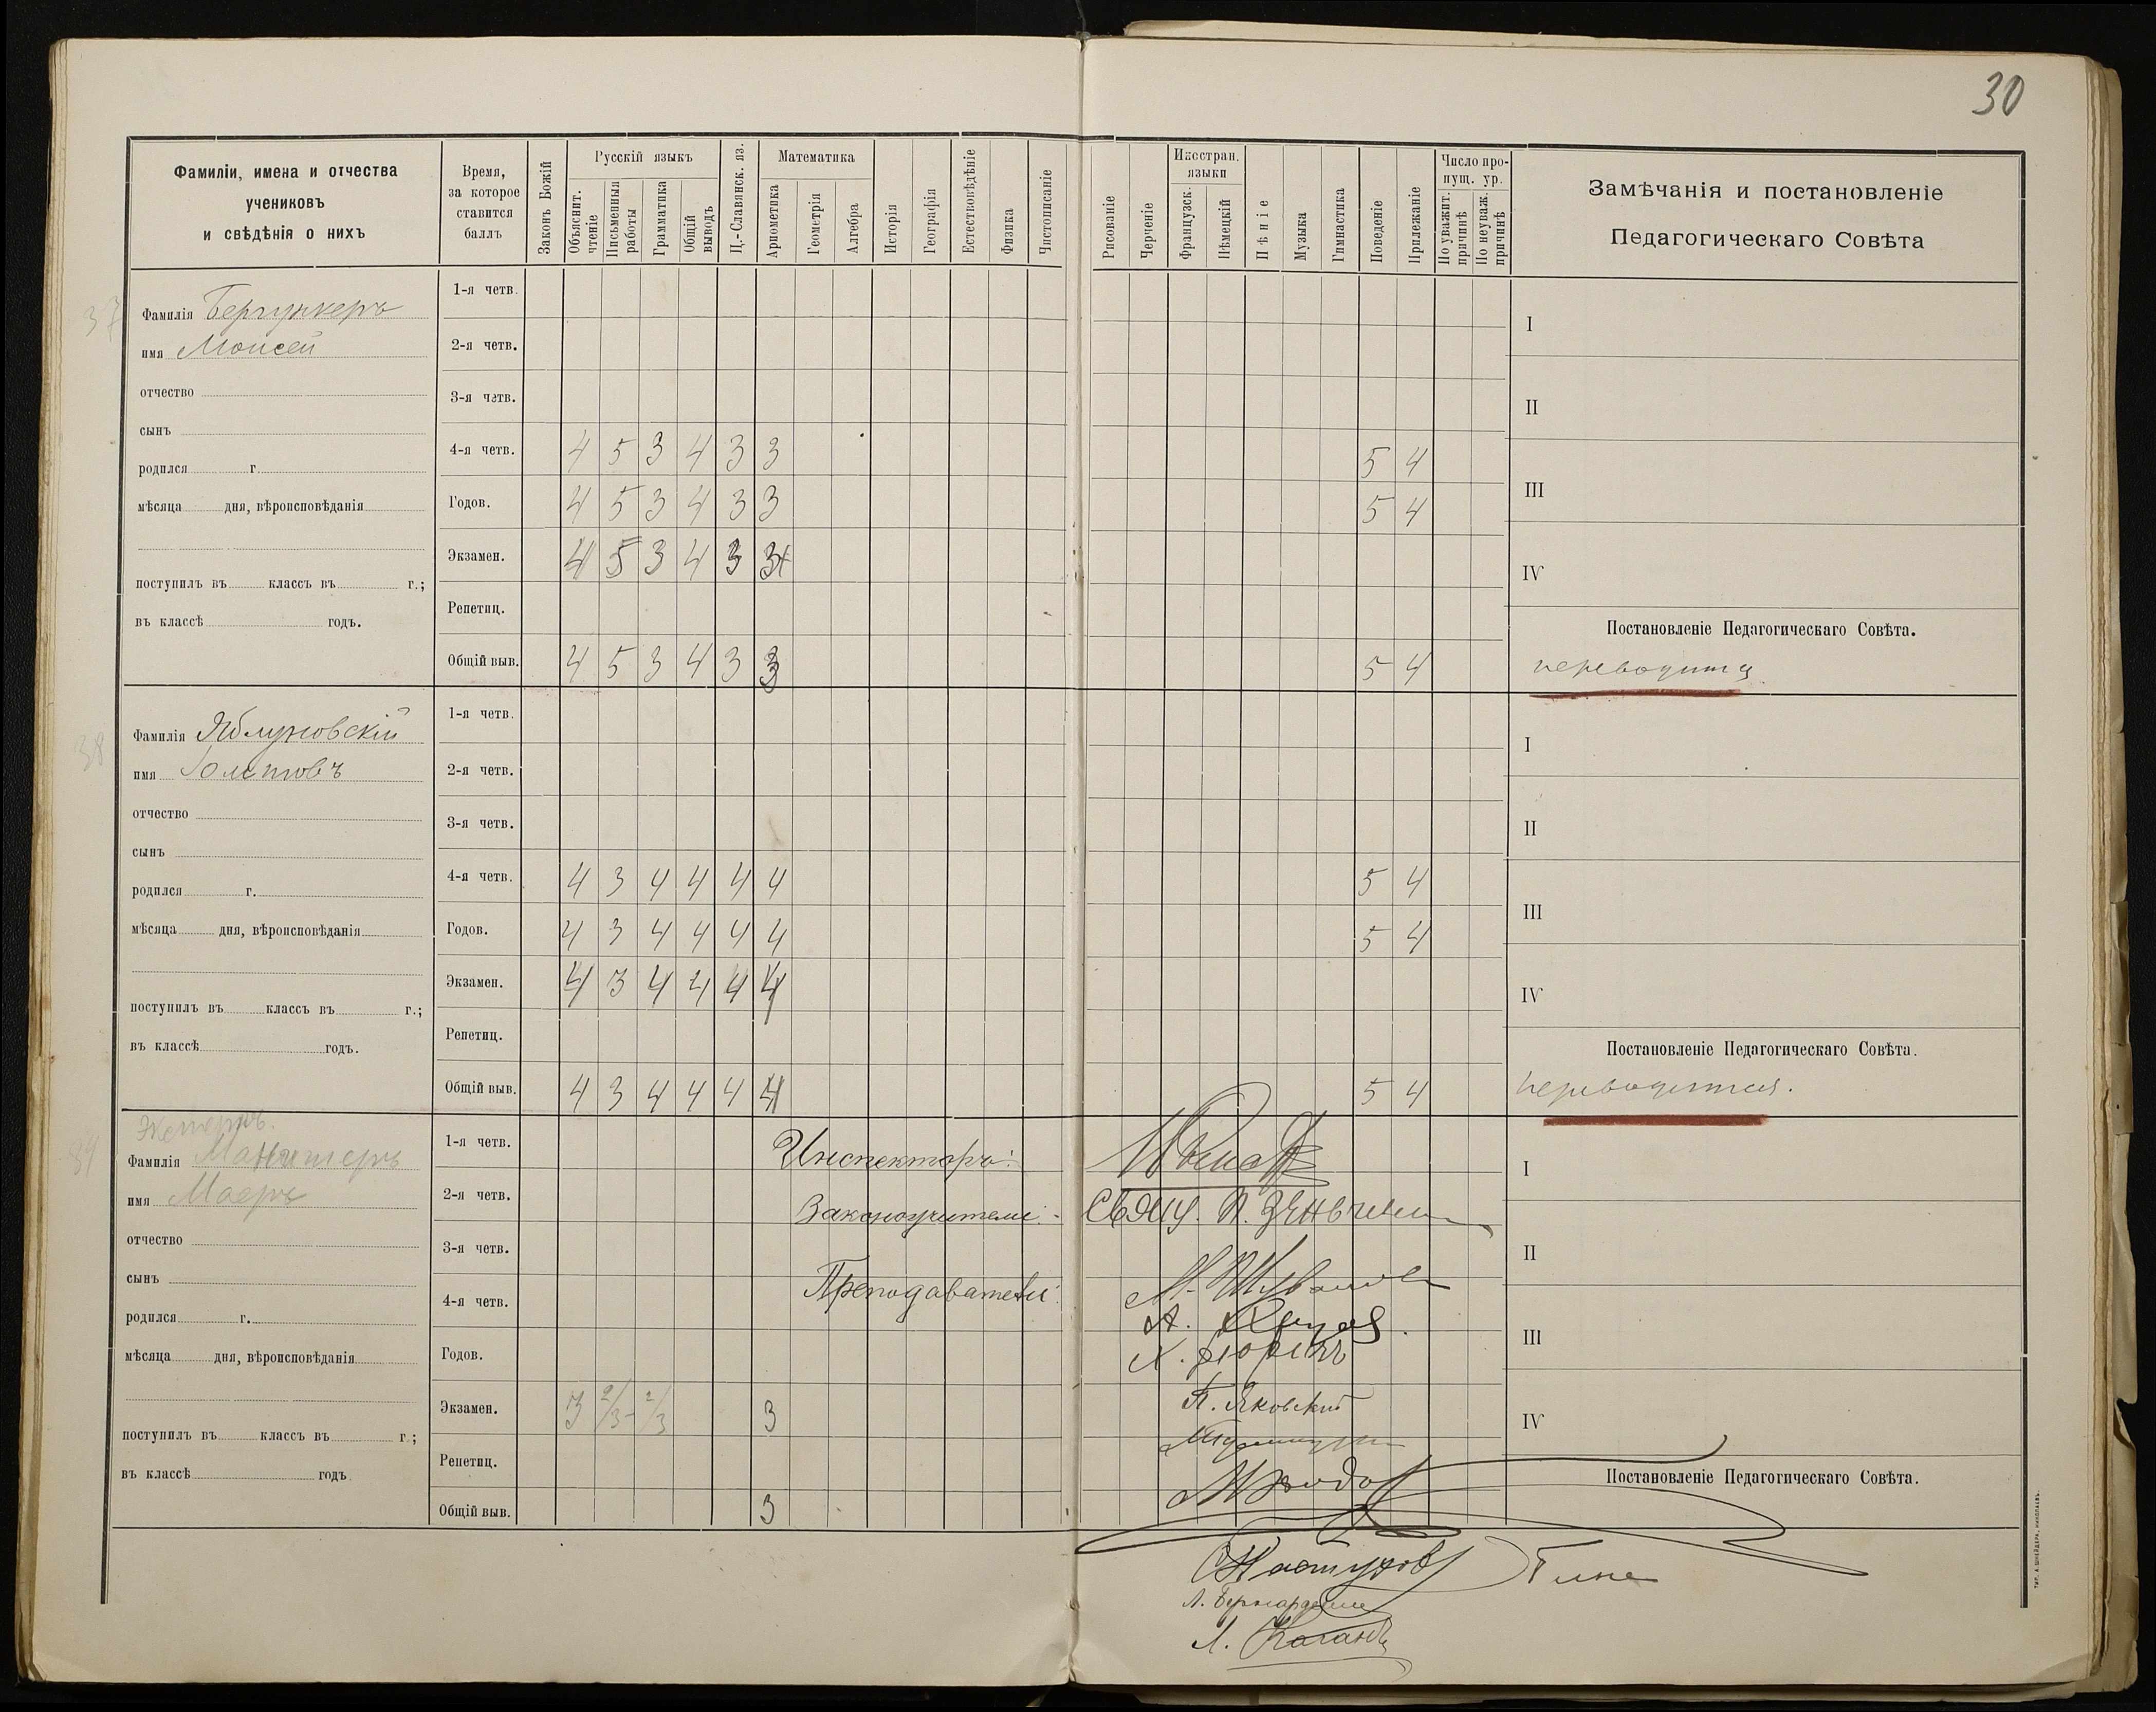 30
Фамиліи, имена и отчества
учениковъ
и свѣдѣнія о нихъ
Время,
за которое
ставится
баллъ
Законъ Божій
Русскій языкъ
Объяснит. чтеніе
Письменныя работы
Грамматика
Общій выводъ
Ц.-Славянск. яз.
Математика
Ариѳметика
Геометрія
Алгебра
Исторія
Географія
Естествовѣдѣніе
Физика
Чистописаніе
Рисованіе
Черченіе
Иностран. языки
Французск.
Нѣмецкій
Пѣніе
Музыка
Гимнастика
Поведеніе
Прилежаніе
Число пропущ. ур.
По уважит. причинѣ
По неуваж. причинѣ
Замѣчанія и постановленіе
Педагогическаго Совѣта
37
Фамилія
имя Моисей
отчество
сынъ
родился г.
мѣсяца дня, вѣроисповѣданія
поступилъ въ классъ въ г.;
въ классѣ годъ.
1-я четв.
2-я четв.
3-я четв.
4-я четв. 4 5 3 4 3 3 5 4
Годов. 4 5 3 4 3 3 5 4
Экзамен. 4 5 3 4 3 3
Репетиц.
Общій выв. 4 5 3 4 3 3 5 4
I
II
III
IV
Постановленіе Педагогическаго Совѣта.
переводится
38
Фамилія Яблуновскій
имя
отчество
сынъ
родился г.
мѣсяца дня, вѣроисповѣданія
поступилъ въ классъ въ г.;
въ классѣ годъ.
1-я четв.
2-я четв.
3-я четв.
4-я четв. 4 3 4 4 4 4 5 4
Годов. 4 3 4 4 4 4 5 4
Экзамен. 4 3 4 4 4 4
Репетиц.
Общій выв. 4 3 4 4 4 4 5 4
I
II
III
IV
Постановленіе Педагогическаго Совѣта.
переводится.
Экстернъ.
Фамилія
имя Маеръ
отчество
сынъ
родился г.
мѣсяца дня, вѣроисповѣданія
поступилъ въ классъ въ г.;
въ классѣ годъ
1-я четв.
2-я четв.
3-я четв.
4-я четв.
Годов.
Экзамен. 3 2/3 - 2/3 3
Репетиц.
Общій выв. 3
Инспекторъ:
Законоучители:
Свящ. П.
Преподаватели:
М.
А.
П. Яковскій
С. Пастухов
Л.
Л. Каганъ
I
II
III
IV
Постановленіе Педагогическаго Совѣта.
ТИП. А. ШНЕЙДЕРА, НИКОЛАЕВЪ.